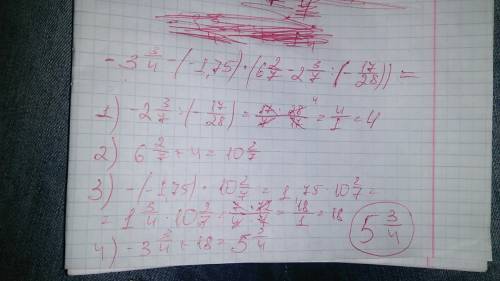 -3 3/4 - (-1,75) · (6 2/7 - 2 3/7 : (-17/28)) =
1) -2 3/7 : (-17/28) = 17/7 · 28/17 4 = 4/1 = 4
2) 6 2/7 + 4 = 10 2/7
3) -(-1,75) · 10 2/7 = 1,75 · 10 2/7 =
= 1 3/4 · 10 2/7 = 7 · 72/4 · 7 = 18/1 = 18
4) -3 3/4 + 18 = 5 3/4
5 3/4